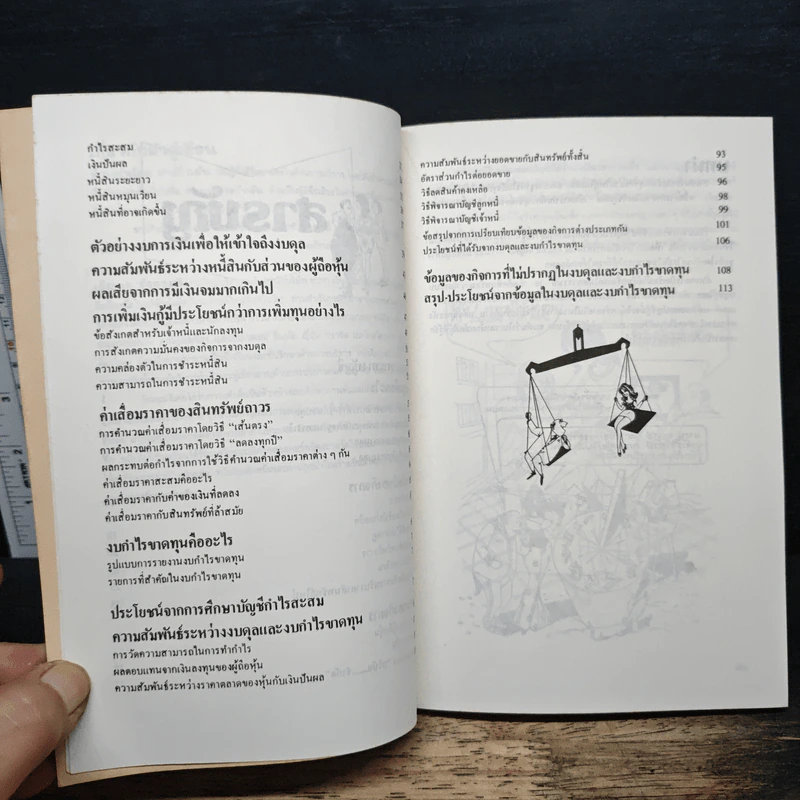 กำไรสะสม
เงินปันผล
หนี้สินระยะยาว
หนี้สินหมุนเวียน
หนี้สินที่อาจเกิดขึ้น
ตัวอย่างงบการเงินเพื่อให้เข้าใจถึงงบดุล
ความสัมพันธ์ระหว่างหนี้สินกับส่วนของผู้ถือหุ้น
ผลเสียจากการมีเงินจมมากเกินไป
การเพิ่มเงินกู้มีประโยชน์กว่าการเพิ่มทุนอย่างไร
ข้อสังเกตสำหรับเจ้าหนี้และนักลงทุน
การสังเกตความมั่นคงของกิจการจากงบดุล
ความคล่องตัวในการชำระหนี้สิน
ความสามารถในการชำระหนี้สิน
ค่าเสื่อมราคาของสินทรัพย์ถาวร
การคำนวณค่าเสื่อมราคาโดยวิธี “เส้นตรง”
การคำนวณค่าเสื่อมราคาโดยวิธี “ลดลงทุกปี”
ผลกระทบต่อกำไรจากการใช้วิธีคำนวณค่าเสื่อมราคาต่าง ๆ กัน
ค่าเสื่อมราคาสะสมคืออะไร
ค่าเสื่อมราคากับค่าของเงินที่ลดลง
ค่าเสื่อมราคากับสินทรัพย์ที่ล้าสมัย
งบกำไรขาดทุนคืออะไร
รูปแบบการรายงานงบกำไรขาดทุน
รายการที่สำคัญในงบกำไรขาดทุน
ประโยชน์จากการศึกษาบัญชีกำไรสะสม
ความสัมพันธ์ระหว่างงบดุลและงบกำไรขาดทุน
การวัดความสามารถในการทำกำไร
ผลตอบแทนจากเงินลงทุนของผู้ถือหุ้น
ความสัมพันธ์ระหว่างราคาตลาดของหุ้นกับเงินปันผล
ความสัมพันธ์ระหว่างยอดขายกับสินทรัพย์ทั้งสิ้น 93
อัตราส่วนกำไรต่อยอดขาย 95
วิธีลดสินค้าคงเหลือ 96
วิธีพิจารณาบัญชีลูกหนี้ 98
วิธีพิจารณาบัญชีเจ้าหนี้ 99
ข้อสรุปจากการเปรียบเทียบข้อมูลของกิจการต่างประเภทกัน 101
ประโยชน์ที่ได้รับจากงบดุลและงบกำไรขาดทุน 106
ข้อมูลของกิจการที่ไม่ปรากฏในงบดุลและงบกำไรขาดทุน 108
สรุป-ประโยชน์จากข้อมูลในงบดุลและงบกำไรขาดทุน 113